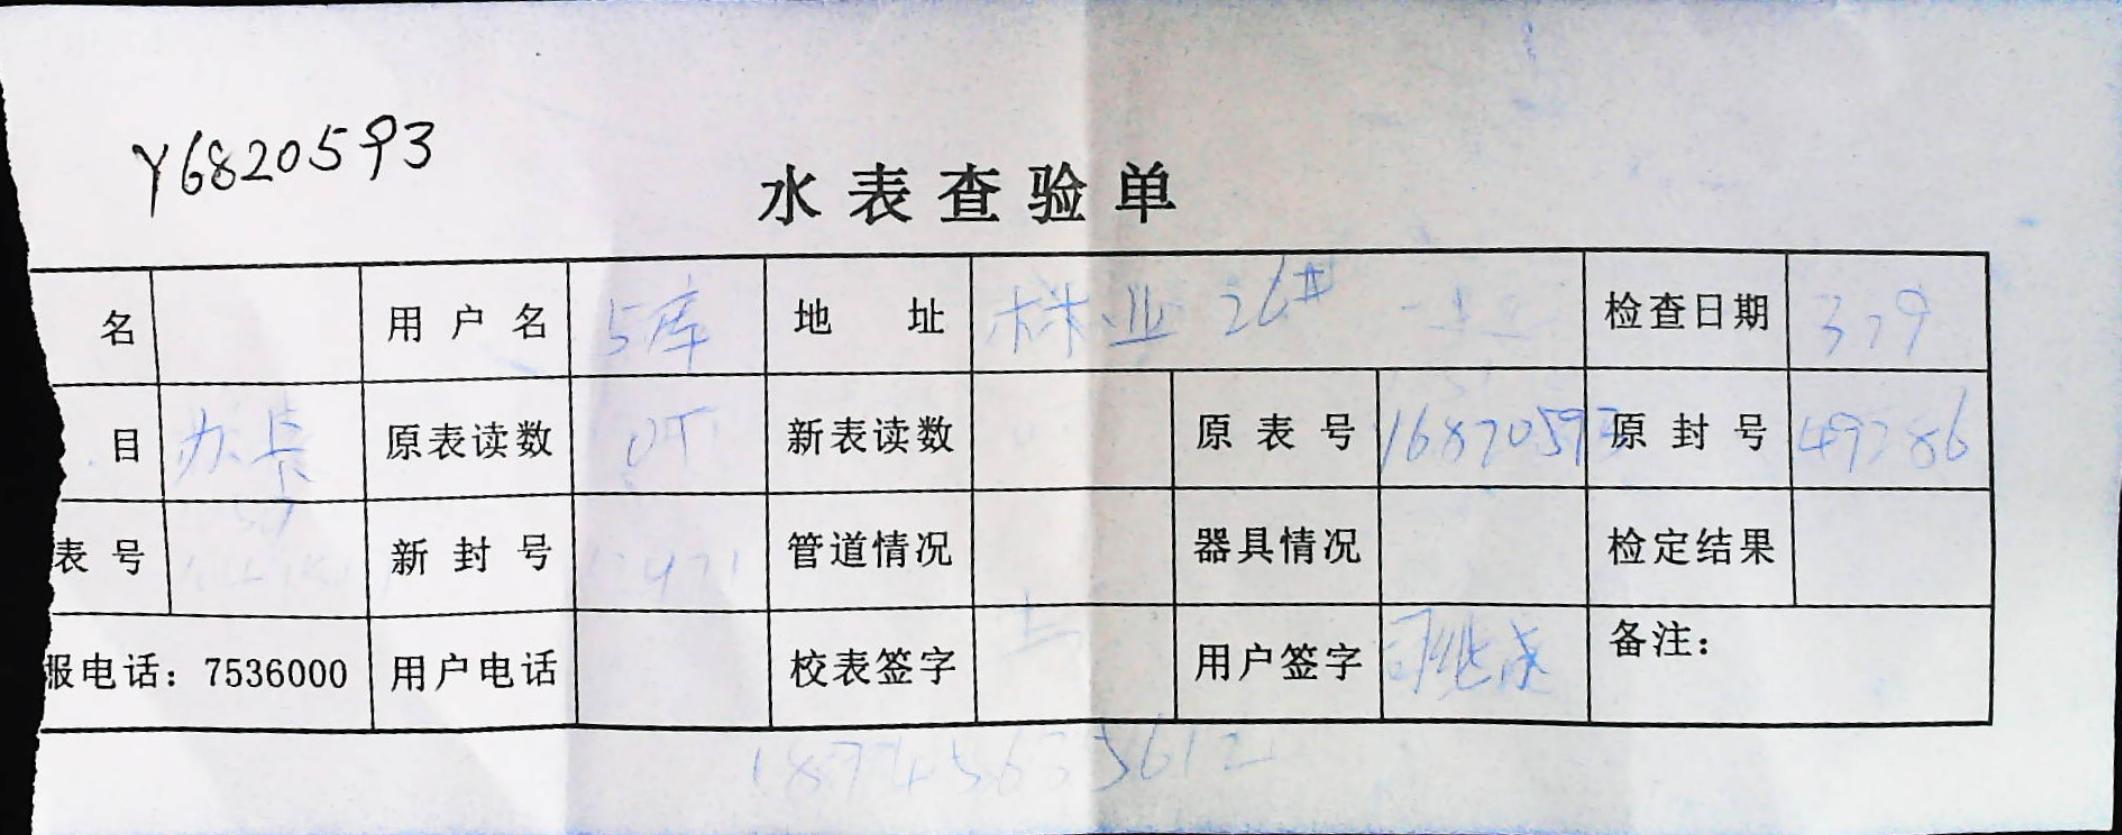 Y6820593
水表查验单
名 用户名 5库 地 址 林业 26# 检查日期 329
目 办卡 原表读数 0T 新表读数 原表号 16820593 原封号 49286
表号 新封号 管道情况 器具情况 检定结果
服电话：7536000 用户电话 校表签字 用户签字 备注：